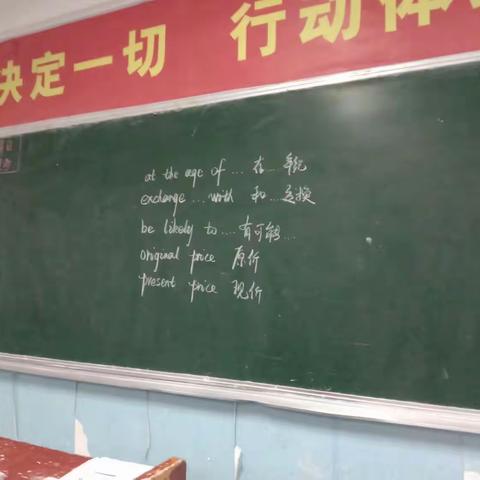 决定一切 行动体
at the age of ... 在...年纪
exchange ... with 和...交换
be likely to .... 有可能...
original price 原价
present price 现价